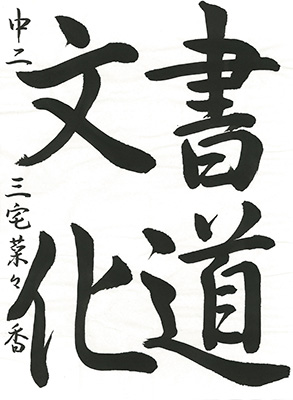 書道
文化
中二 三宅菜々香